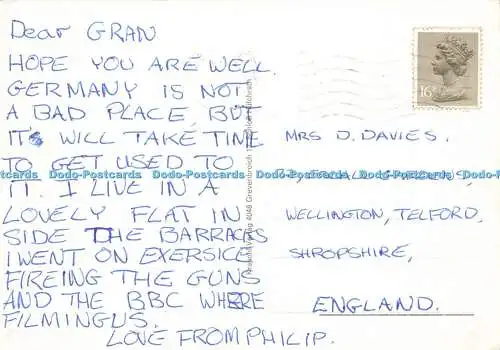 Dear GRAN
HOPE YOU ARE WELL.
GERMANY IS NOT
A BAD PLACE, BUT
IT'S WILL TAKE TIME
TO GET USED TO
IT. I LIVE IN A
LOVELY FLAT IN
SIDE THE BARRACKS
I WENT ON EXERSICE
FIREING THE GUNS
AND THE BBC WHERE
FILMINGUS.
LOVE FROM PHILIP.
16
MRS D. DAVIES.
GARDENS,
WELLINGTON, TELFORD,
SHROPSHIRE,
ENGLAND.
4048 Grevenbroich
Dodo-Postcards Dodo-Postcards Dodo-Postcards Dodo-Postcards Dodo-Postcards